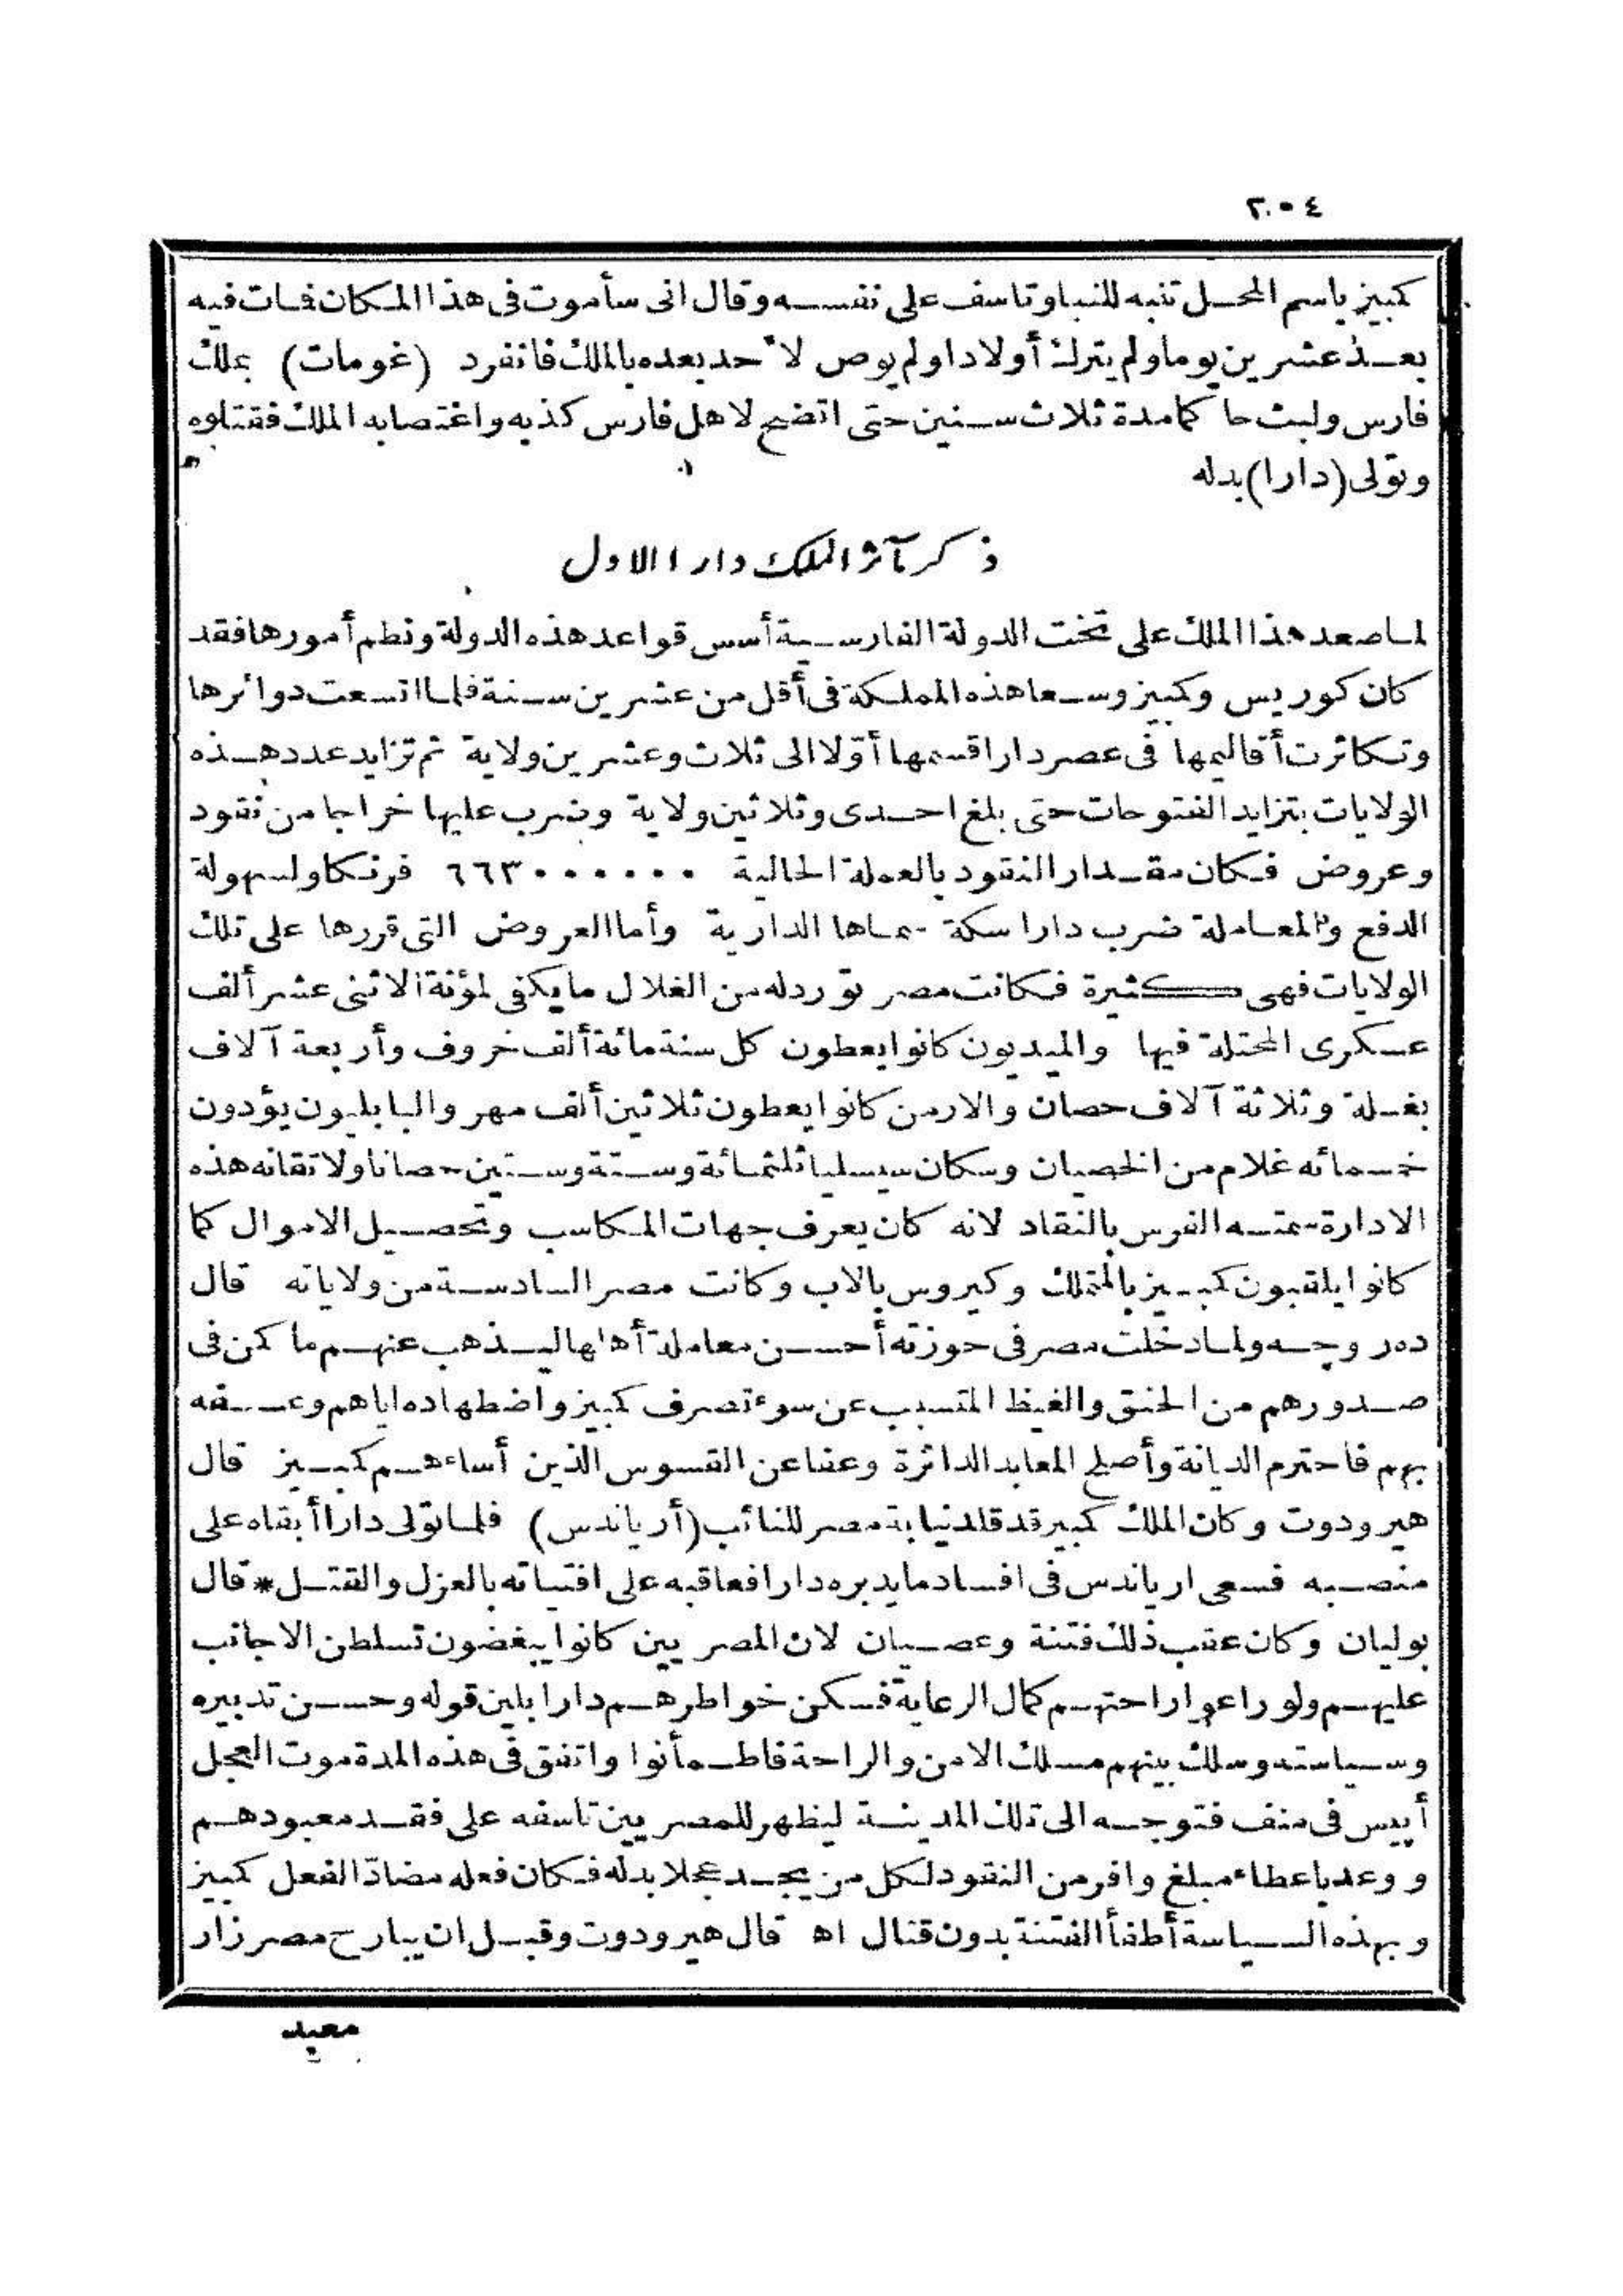 ٢٠٤
كمبيز باسم المحل تنبه للنبا وتاسف على نفسه وقال انى سأموت فى هذا المكان فمات فيه
بعد عشرين يوما ولم يترك أولادا ولم يوص لاحد بعده بالملك فانفرد (غومات) بملك
فارس ولبث حاكما مدة ثلاث سنين حتى اتضح لاهل فارس كذبه واغتصابه الملك فقتلوه
وتولى (دارا) بدله
ذكر مآثر الملك دارا الاول
لما صعد هذا الملك على تخت الدولة الفارسية أسس قواعد هذه الدولة ونظم أمورها فقد
كان كوريس وكمبيز وسعا هذه المملكة فى أقل من عشرين سنة فلما اتسعت دوائرها
وتكاثرت أقاليمها فى عصر دارا قسمها أوّلا الى ثلاث وعشرين ولاية ثم تزايد عدد هذه
الولايات بتزايد الفتوحات حتى بلغ احدى وثلاثين ولاية وضرب عليها خراجا من نقود
وعروض فكان مقدار النقود بالعملة الحالية ٦٦٣٠٠٠٠٠٠ فرنكا ولسهولة
الدفع والمعاملة ضرب دارا سكة سماها الدارية وأما العروض التى قررها على تلك
الولايات فهى كثيرة فكانت مصر تورد له من الغلال ما يكفى لمؤنة الاثنى عشر ألف
عسكرى المحتلة فيها والميديون كانوا يعطون كل سنة مائة ألف خروف وأربعة آلاف
بغلة وثلاثة آلاف حصان والارمن كانوا يعطون ثلاثين ألف مهر والبابليون يؤدون
خمسمائه غلام من الخصيان وسكان سيسليا ثلثمائة وستة وستين حصانا ولاتقانه هذه
الادارة سمته الفرس بالنقاد لانه كان يعرف جهات المكاسب وتحصيل الاموال كما
كانوا يلقبون كمبيز بالمتملك وكيروس بالاب وكانت مصر السادسة من ولاياته قال
ده روجه ولما دخلت مصر فى حوزته أحسن معاملة أهلها ليذهب عنهم ما كمن فى
صدورهم من الحنق والغيظ المتسبب عن سوء تصرف كمبيز واضطهاده اياهم وعسفه
بهم فاحترم الديانة وأصلح المعابد الداثرة وعفا عن القسوس الذين أساءهم كمبيز قال
هيرودوت وكان الملك كمبيز قد قلد نيابة مصر للنائب (أرياندس) فلما تولى دارا أبقاه على
منصبه فسعى ارياندس فى افساد ما يدبره دارا فعاقبه على افتياته بالعزل والقتل * قال
بوليان وكان عقب ذلك فتنة وعصيان لان المصريين كانوا يبغضون تسلطن الاجانب
عليهم ولو راعوا راحتهم كمال الرعاية فسكن خواطرهم دارا بلين قوله وحسن تدبيره
وسياسته وسلك بينهم مسلك الامن والراحة فاطمأنوا واتفق فى هذه المدة موت العجل
أبيس فى منف فتوجه الى تلك المدينة ليظهر للمصريين تاسفه على فقد معبودهم
ووعد باعطاء مبلغ وافر من النقود لكل من يجد عجلا بدله فكان فعله مضادّا لفعل كمبيز
وبهذه السياسة أطفأ الفتنة بدون قتال اه قال هيرودوت وقبل ان يبارح مصر زار
معبد